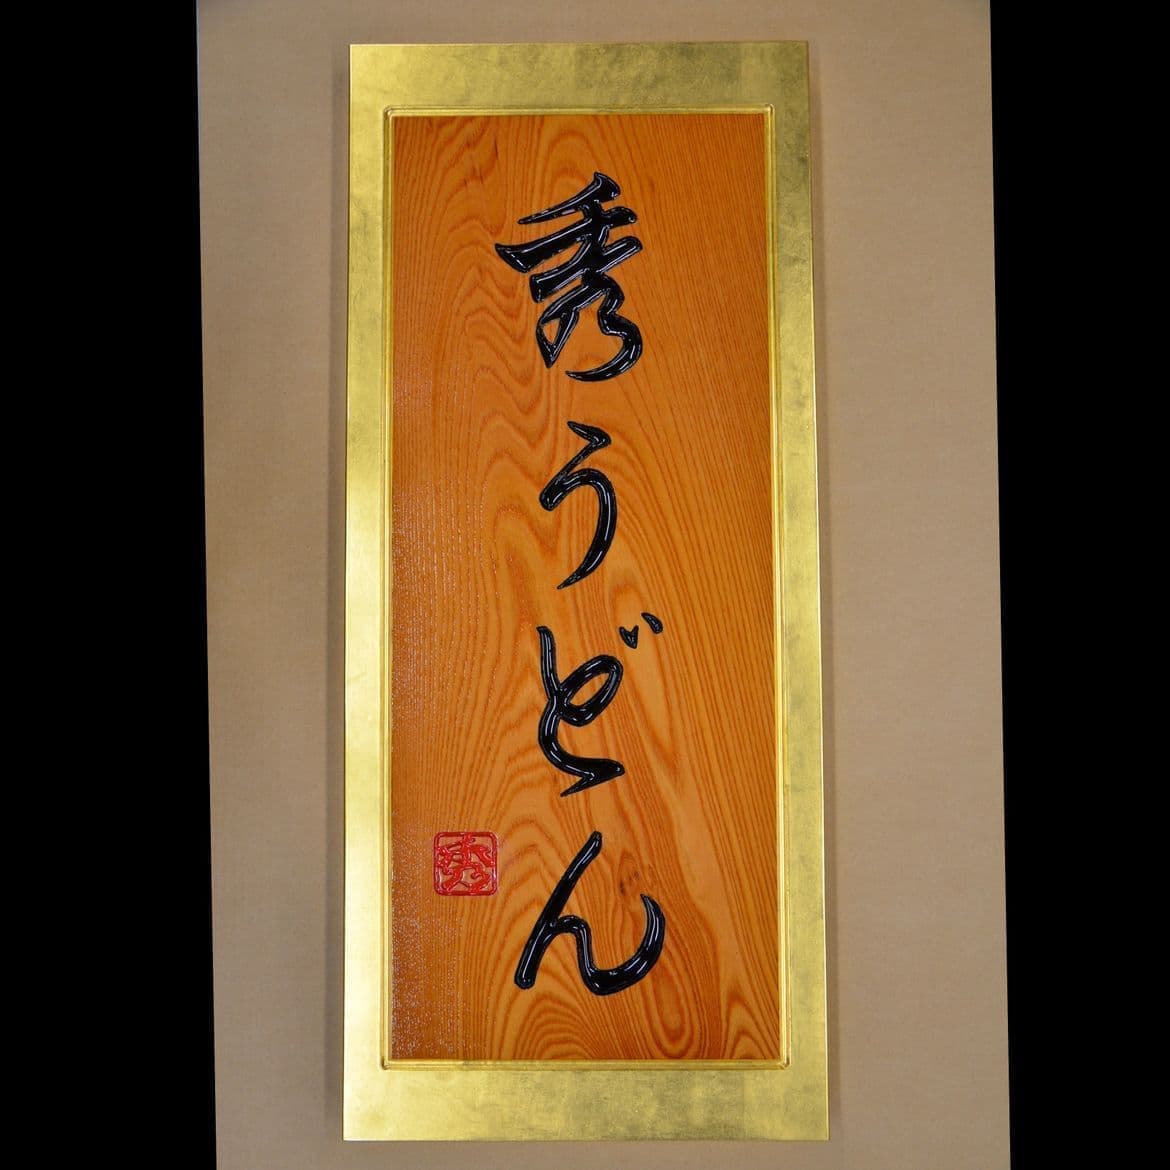 秀うどん
秀